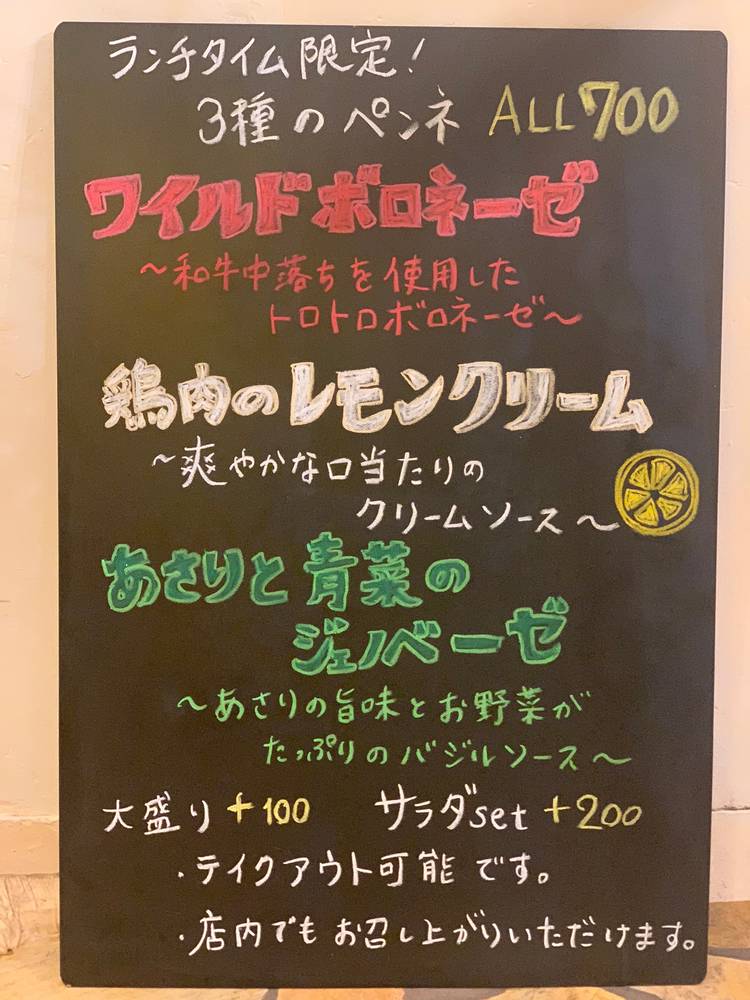 ランチタイム限定!
3種のペンネ ALL700
ワイルドボロネーゼ
~和牛中落ちを使用した
トロトロボロネーゼ~
鶏肉のレモンクリーム
~爽やかな口当たりの
クリームソース~
あさりと青菜の
ジェノベーゼ
~あさりの旨味とお野菜が
たっぷりのバジルソース~
大盛り+100 サラダset+200
・テイクアウト可能です。
・店内でもお召し上がりいただけます。